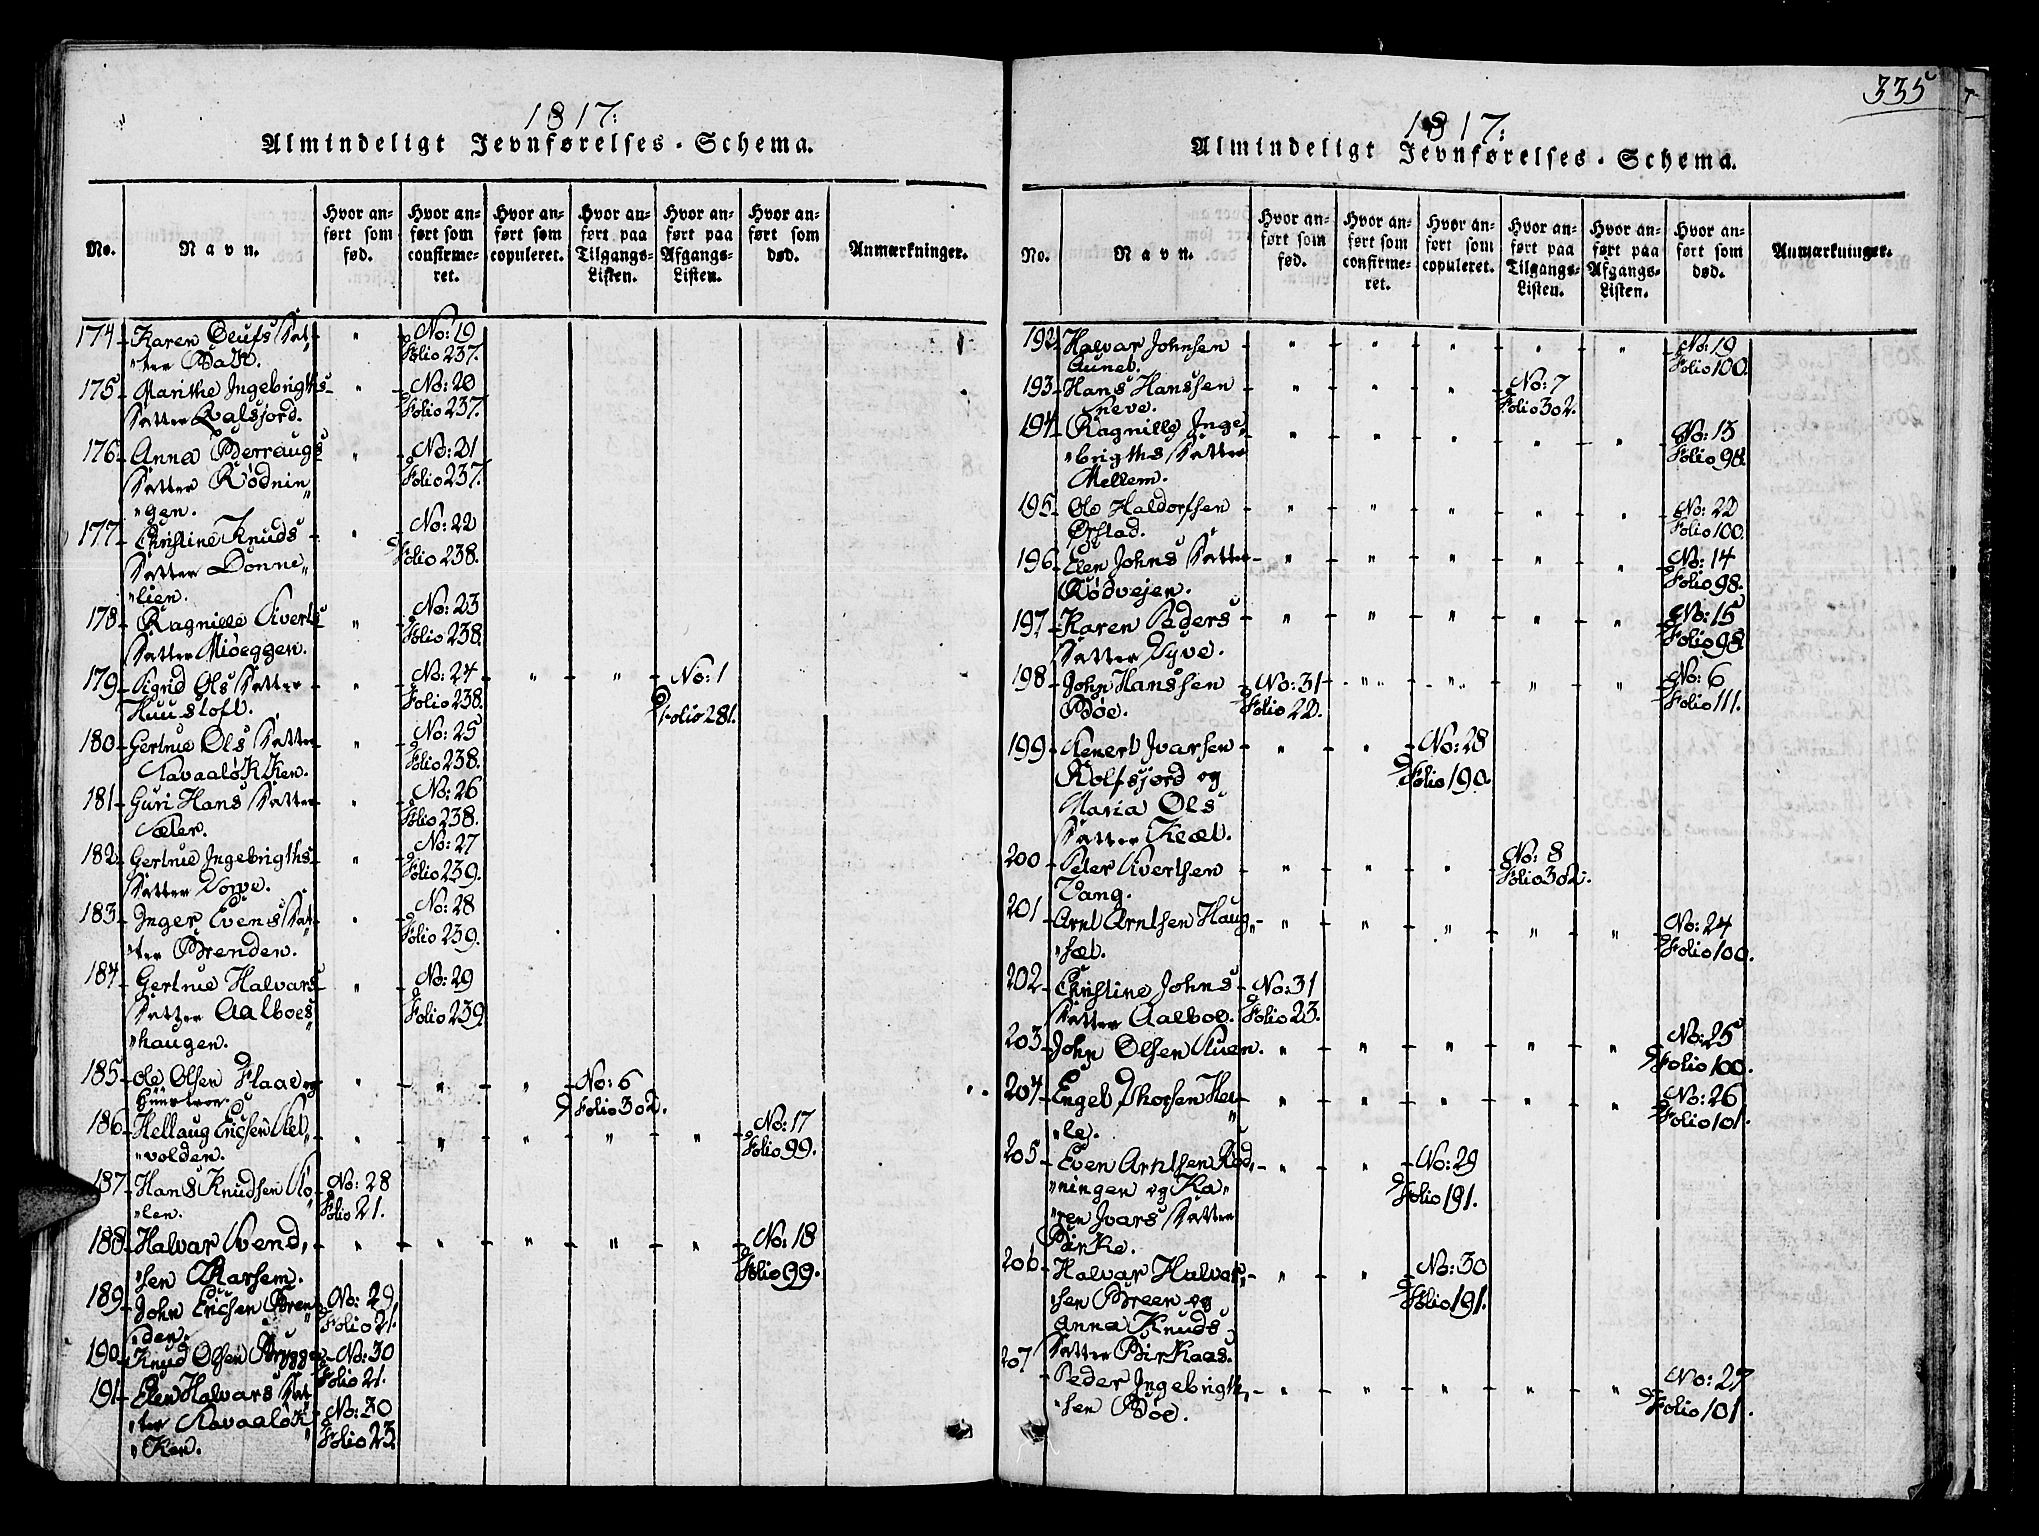 1817.
Almindeligt Jevnførelses-Schema.
No.
Navn.
Hvor anført som fød.
Hvor anført som confirmeret.
Hvor anført som copuleret.
Hvor anført paa Tilgangs-Listen.
Hvor anført paa Afgangs-Listen.
Hvor anført som død.
Anmærkninger.
174 Karen Olufs Dat
ter Bak. " No: 19 Folio 237.
175 Marithe Ingebrigths
Datter Qvalsjord. " No: 20 Folio 237.
176 Anna Berraugs
Datter Rødnin
gen. " No: 21 Folio 237.
177 Christine Knuds
Datter Donne
lien. " No: 22 Folio 238.
178 Ragnille Siverts
Datter Mioeggen. " No: 23 Folio 238
179 Sigrid Ols Datter
Huustoft. " No: 24 Folio 238. " " No: 1 Folio 281.
180 Gertrue Ols Datter
Kavaaløkken. " No: 25 Folio 238.
181 Guri Hans Datter
Sæter. " No: 26 Folio 238.
182 Gertrue Ingebrigths
Datter Vorve. " No: 27 Folio 239.
183 Inger Evens Dat
ter Brenden. " No: 28 Folio 239.
184 Gertrue Halvars
Datter Aalboes
haugen. " No: 29 Folio 239.
185 Ole Olsen Flaae og
" " " No: 6 Folio 302.
186 Hellaug Ericsen Slet
volden. " " " " " No: 17 Folio 99.
187 Hans Knudsen Slø
len. No: 28 Folio 21.
188 Halvar Svend
sen Qkarsem. " " " " " No: 18 Folio 99.
189 John Ericsen Bren
den. No: 29 Folio 21.
190 Knud Olsen Brygge No: 30 Folio 21.
191 Elen Halvars Dat
ter Kavaaløk
ken. No: 30 Folio 23
335
1817.
Almindeligt Jevnførelses-Schema.
No.
Navn.
Hvor anført som fød.
Hvor anført som confirmeret.
Hvor anført som copuleret.
Hvor anført paa Tilgangs-Listen.
Hvor anført paa Afgangs-Listen.
Hvor anført som død.
Anmærkninger.
192 Halvar Johnsen
Aunet. " " " " " No: 19 Folio 100.
193 Hans Hanssen
Sneve. " " " No: 7 Folio 302.
194 Ragnille Inge
brigths Datter
Mellem. " " " " " No: 13 Folio 98.
195 Ole Haldorsen
Ørstad. " " " " " No: 22 Folio 100.
196 Elen Johns Datter
Rødvejen. " " " " " No: 14 Folio 98.
197 Karen Peders
Datter Vyve. " " " " " No: 15 Folio 98.
198 John Hanssen
Bøe. No: 31 Folio 22. " " " " No: 6 Folio 111.
199 Senert Ivarsen
Rolfsjord og
Maria Ols
Datter Klæt. " " No: 28 Folio 190.
200 Peter Sivertsen
Vang. " " " No: 8 Folio 302.
201 Arnt Arntsen Haug
sæt. " " " " " No: 24 Folio 100.
202 Christine Johns
Datter Aalboe. No: 31 Folio 23.
203 John Olsen Stuen. " " " " " No: 25 Folio 100.
204 Engel Thorsen Hel
le. " " " " " No: 26 Folio 101.
205 Even Arntsen Rød
ningen og Ka
ren Ivars Datter
Birke. " " No: 29 Folio 191.
206 Halvar Halvar
sen Breen og
Anna Knuds
Datter Birkaas. " " No: 30 Folio 191.
207 Peder Ingebrigth
sen Bøe. " " " " " No: 27 Folio 101.